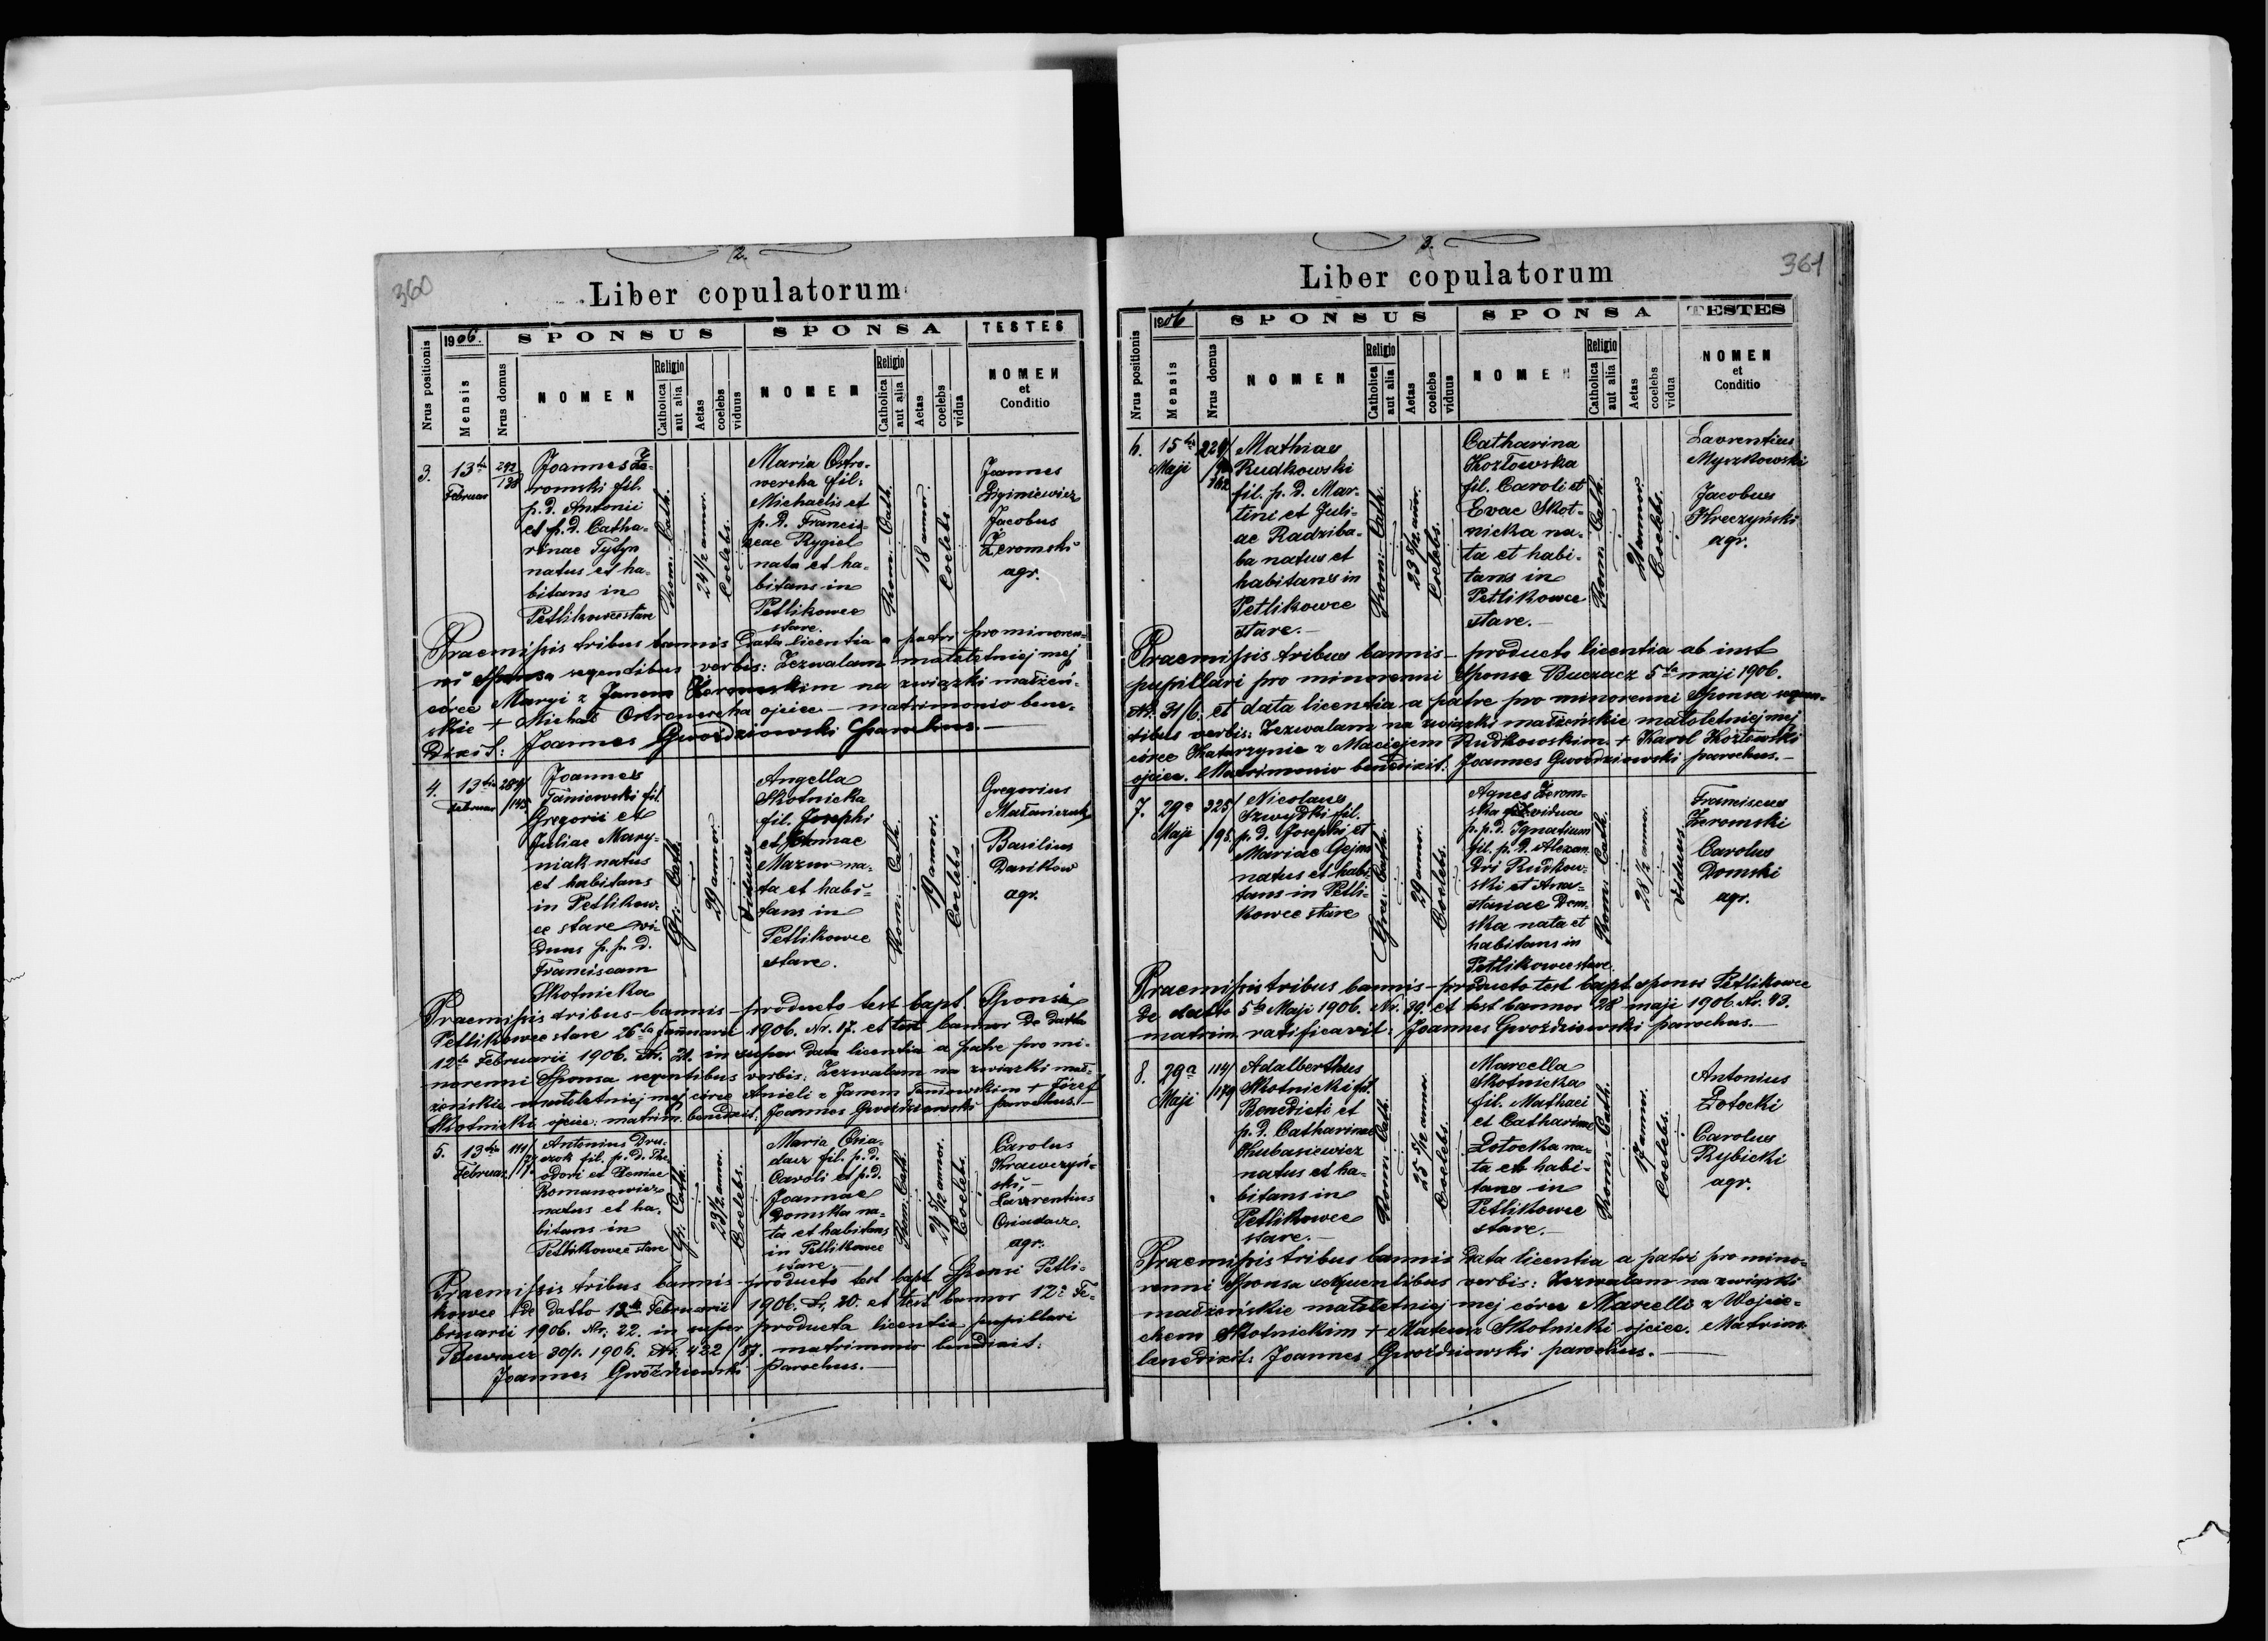 360
2.
Liber copulatorum
Nrus positionis
1906.
Mensis
SPONSUS
Nrus domus
NOMEN
Religio
Catholica
aut alia
Aetas
coelebs
viduus
SPONSA
NOMEN
Religio
Catholica
aut alia
Aetas
coelebs
vidua
TESTES
NOMEN
et
Conditio
3.
13ta
Februar
242
138
Joannes Że-
romski fil.
p. d. Antonii
et p. d. Catha-
rinae Tytyn
natus et ha-
bitans in
Petlikowce stare
Rom. Cath.
24 1/2 annor.
Coelebs.
Maria Ostro-
wercha fil.
Michaelis et
p. d. Francis-
cae Rygiel
nata et ha-
bitans in
Petlikowce
stare.
Rom. Cath.
18 annor.
Coelebs.
Joannes
Jacobus
Żeromski
agr.
Praemissis tribus bannis data licentia a patri pro minoren-
ni Sponsa seqendibus verbis: Zezwalam małoletniej mej
córce Maryi z Janem Żeromskim na związki małżeń-
skie + Michał Ostrowercha ojciec – matrimonio bene-
dixit: Joannes Gwoździowski Parochus.
4.
13tia
Februar
284/
145.
Joannes
Taniowski fil.
Gregorii et
Juliae Mary-
niak natus
et habitans
in Petlikow-
ce stare vi-
duus p. p. d.
Franciscam
Skotnicka
Gr. Cath.
29 annor.
Viduus
Angella
Skotnicka
fil. Josephi
et Annae
Mazur na-
ta et habi-
tans in
Petlikowce
stare.
Rom. Cath.
19 annor.
Coelebs
Gregorius
Basilius
Danikow
agr.
Praemissis tribus bannis producto test bapt Sponsi
Petlikowce stare 26ta Januarii 1906. Nr. 17. et test bannor de datto
12ta Februarii 1906. Nr. 21. in super data licentia a patre pro mi-
norenni Sponsa seqentibus verbis: Zezwalam na związki mał-
żeńskie małoletniej mej córce Anieli z Janem Taniowskim + Józef
Skotnicki ojciec: matrim. benedixit: Joannes Gwoździowski parochus.
5.
13tia
Februar
Antonius Dru-
fil. p. d. The-
odori et Xeniae
Romanowicz
natus et ha-
bitans in
Petlikowce stare
Gr. Cath.
23 1/2 annor.
Coelebs.
Maria Osia-
dacz fil. p. d.
Caroli et p. d.
Joannae
Domska na-
ta et habitans
in Petlikowce
stare.
Rom. Cath.
23 5/12 annor.
Coelebs.
Carolus
Krawczyń-
ski,
Laurentius
Osiadacz.
agr.
Praemissis tribus bannis producto test bapt Sponsi Petli-
kowce de datto 12ta Februarii 1906. Nr. 20. et test bannor 12a Fe-
bruarii 1906. Nr. 22. in super producta licentia pupillari
Buczacz 30/1. 1906. Nr. 422/87. matrimonio benedixit:
Joannes Gwoździowski Parochus.
361
3.
Liber copulatorum
Nrus positionis
1906
Mensis
SPONSUS
Nrus domus
NOMEN
Religio
Catholica
aut alia
Aetas
coelebs
viduus
SPONSA
NOMEN
Religio
Catholica
aut alia
Aetas
coelebs
vidua
TESTES
NOMEN
et
Conditio
6.
15ta
Maji
Mathias
Rudkowski
fil. p. d. Mar-
tini et Juli-
ae Radziba-
ba natus et
habitans in
Petlikowce
stare.
Rom. Cath.
23 3/12 ann.
Coelebs.
Catharina
Kozłowska
fil. Caroli et
Evae Skot-
nicka na-
ta et habi-
tans in
Petlikowce
stare.
Rom. Cath.
21 annor.
Coelebs.
Laurentius
Myszkowski
Jacobus
Kreczyński
agr.
Praemissis tribus bannis – producto licentia ab inst
pupillari pro minorenni Sponso Buczacz 5ta maji 1906.
Nr. 31/6. et data licentia a patre pro minorenni Sponsa sequen-
tibus verbis: Zezwalam na związki małżeńskie małoletniej mej
córce Katarzynie z Maciejem Rudkowskim. + Karol Kozłowski
ojciec. Matrimonio benedixit: Joannes Gwoździowski parochus.
7.
29a
Maji
325/
95.
Nicolaus
Szwydki fil.
p. d. Josephi et
Mariae Gejna
natus et habi-
tans in Petli-
kowce stare
Grec. Cath.
29 annor.
Coelebs.
Agnes Żerom-
ska vidua
p. p. d. Ignatium
fil. p. d. Alexan-
dri Rudkow-
ski et Ana-
stasiae Dom-
ska nata et
habitans in
Petlikowce stare
Rom. Cath.
28 1/2 annor.
Viduus.
Franciscus
Żeromski
Carolus
Domski
agr.
Praemissis tribus bannis – producto test bapt sponsi Petlikowce
de datto 5ta Maji 1906. Nr. 39. et test bannor 28 maji 1906. Nr. 43.
matrim ratificavit: Joannes Gwoździowski parochus.
8.
29a
Maji
114/
179
Adalberthus
Skotnicki fil.
Benedicti et
p. d. Catharinae
Kubasiewicz
natus et ha-
bitans in
Petlikowce
stare.
Rom. Cath.
25 5/12 annor.
Coelebs.
Marcella
Skotnicka
fil. Mathaei
et Catharinae
Potocka na-
ta et habi-
tans in
Petlikowce
stare.
Rom. Cath.
17 annor.
Coelebs.
Antonius
Potocki
Carolus
Rybicki
agr.
Praemissis tribus bannis data licentia a patri pro mino-
renni Sponsa sequentibus verbis: Zezwalam na związki
małżeńskie małoletniej mej córce Marcelli z Wojcie-
chem Skotnickim + Mateusz Skotnicki ojciec. Matrim.
benedixit: Joannes Gwoździowski parochus.